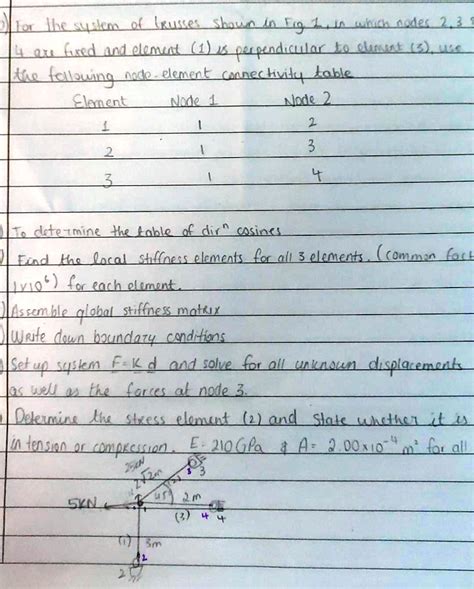 For the system of trusses shown in Fig 1, in which nodes 2, 3 &
4 are fixed and element (1) is perpendicular to element (3), use
the following node-element connectivity table
Element Node 1 Node 2
1 1 2
2 1 3
3 1 4
To determine the table of dirⁿ cosines
Find the local stiffness elements for all 3 elements. (common fact
1×10⁶) for each element.
Assemble global stiffness matrix
Write down boundary conditions
Set up system F=K d and solve for all unknown displacements
as well as the forces at node 3.
Determine the stress element (2) and state whether it is
in tension or compression. E= 210 GPa & A= 2.00×10⁻⁴ m² for all
25KN
2√2m
3 3
(2)
5KN 1 45° 2m
(3) 4 4
(1) 3m
2
2